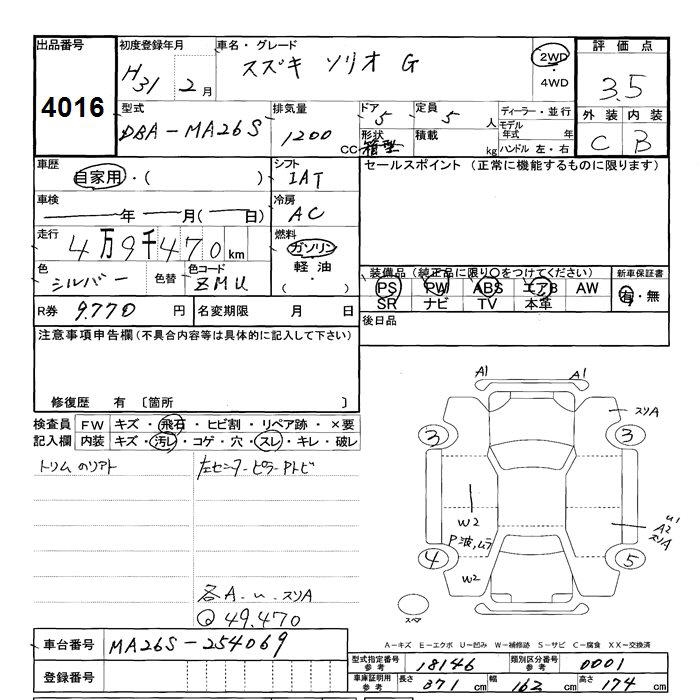 出品番号 初度登録年月 車名・グレード 評価点
4016 H31 2月 スズキ ソリオ G 2WD ・ 4WD 3.5
型式 排気量 ドア 定員 ディーラー・並行 外装 内装
DBA-MA26S 1200 CC 5 5人 モデル年式 年 C B
形状 箱型 積載 kg ハンドル 左・右
車歴 自家用・( ) シフト IAT セールスポイント (正常に機能するものに限ります)
車検 年 月( 日) 冷房 AC
走行 4万9千470km 燃料 ガソリン
色 シルバー 色替 色コード ZMU 軽油・( )
装備品 (純正品に限り○をつけてください) 新車保証書
PS PW ABS エアB AW 有・無
SR ナビ TV 本革
R券 9.770 円 名変期限 月 日 後日品
注意事項申告欄(不具合内容等は具体的に記入して下さい)
修復歴 有 〔箇所 〕
検査員 FW キズ・飛石・ヒビ割・リペア跡・×要
記入欄 内装 キズ・汚レ・コゲ・穴・スレ・キレ・破レ
トリム
各A.u.スリA
49.470
A1 A1
スリA
3 3
W2
u1
A2
スリA
P波,ムラ
4 5
W2
スペア
A-キズ E-エクボ U-凹み W-補修跡 S-サビ C-腐食 XX-交換済
車台番号 MA26S-254069
型式指定番号 参考 18146 類別区分番号 参考 0001
登録番号
車庫証明用 参考 長さ 371cm 幅 162cm 高さ 174cm